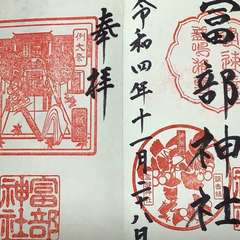 冨部神社
令和四年十一月二八日
奉拝
例大祭
富部
神社